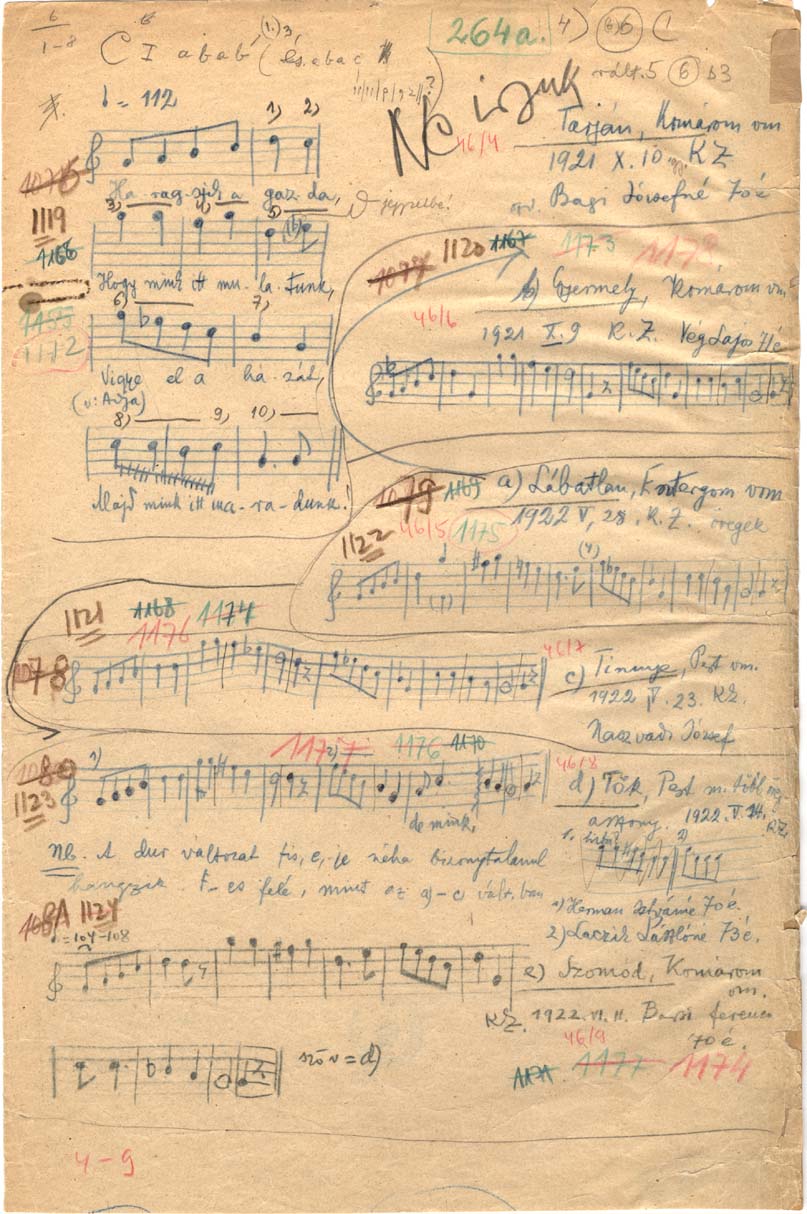 6
1-8
C I abab (és abac
264a.
4) 6 (
vált. 5 6 b3
♩= 112
1) 2)
Ne írjuk
46/4
Tarján, Komárom vm
1921 X. 10. KZ
Bagi Józsefné 70 é
1076
Ha-rag-szik a gaz-da,
1119
1166
3) 4) 5)
Hogy mink itt mu-la-tunk,
1172
6) 7)
Vigye el a ha-zát,
(v: Adja)
8) 9) 10)
Majd mink itt ma-ra-dunk!
1120 1167 1173 1173
b) Gyermely, Komárom vm
46/6
1921 X. 9 K. Z. Vég Lajos 71 é
1079 1169 a) Lábatlan, Esztergom vm
46/5 1175 1922 V, 28. K. Z. öregek
1122
1121 1168 1174
1176
1078
46/7
c) Tinnye, Pest vm.
1922 V. 23. KZ.
Naszvadi József
1080
1123
1) 1177 2) 1176 1170
46/8
d) Tök, Pest m. több
asszony. 1922. V. 24.
KZ.
de mink,
Nb. A dur változat fis, e, -je néha bizonytalanul
hangzik. F-es felé, mint az a)-c vált. ban
1) Herman Istvánné 70 é.
2) Laczik Lászlóné 73 é.
1124
♩=104-108
e) Szomód, Komárom
vm.
KZ. 1922. VI. 11. Barsi Ferenc
70 é.
46/9
szöv = d)
1171 1177 1174
4-9